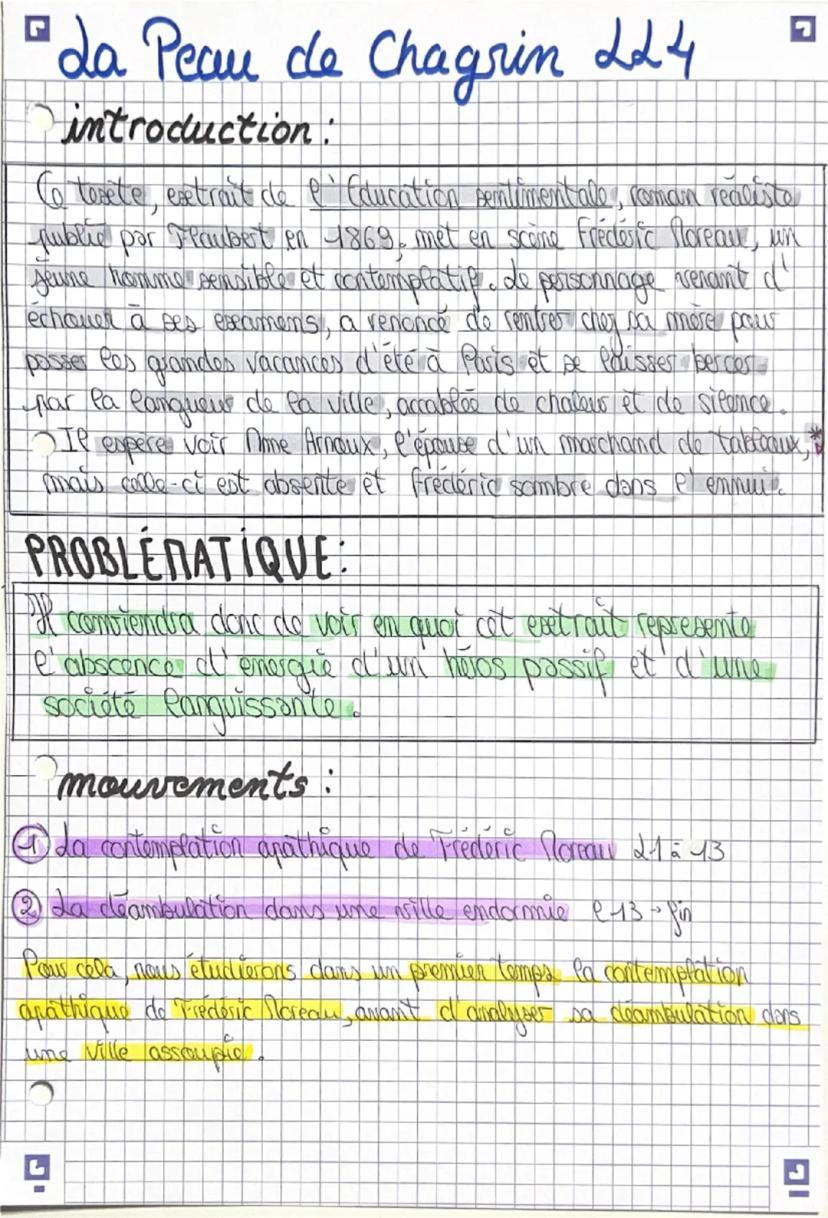 La Peau de Chagrin LL4
introduction :
Ce texte, extrait de l'Education sentimentale, roman réaliste
publié par Flaubert en 1869, met en scène Frédéric Moreau, un
jeune homme sensible et contemplatif. Le personnage venant d'
échouer à ses examens, a renoncé de rentrer chez sa mère pour
passer les grandes vacances d'été à Paris et se laisser bercer
par la langueur de la ville, accablée de chaleur et de silence.
Il espère voir Mme Arnoux, l'épouse d'un marchand de tableaux,*
mais celle-ci est absente et Frédéric sombre dans l'ennui.
PROBLÉMATIQUE :
Il conviendra donc de voir en quoi cet extrait represente
l'abscence d'energie d'un héros passif et d'une
société languissante.
mouvements :
① La contemplation apathique de Frédéric Moreau L1 à 13
② La déambulation dans une ville endormie l 13 → fin
Pour cela, nous étudierons dans un premier temps la contemplation
apathique de Frédéric Moreau, avant d'analyser sa déambulation dans
une ville assoupie.